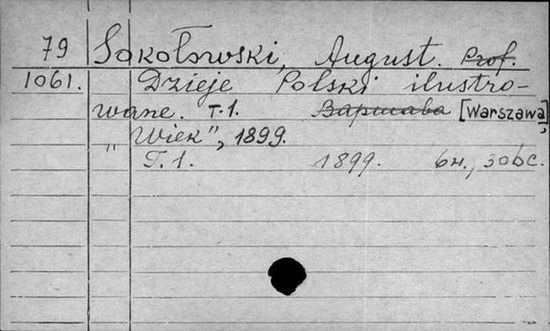 79 Sokołowski, August. Prof.
1061. Dzieje Polski ilustro-
wane. T.1. Варшава [Warszawa],
"Wiek", 1899.
T.1. 1899. 6н., 30бс.